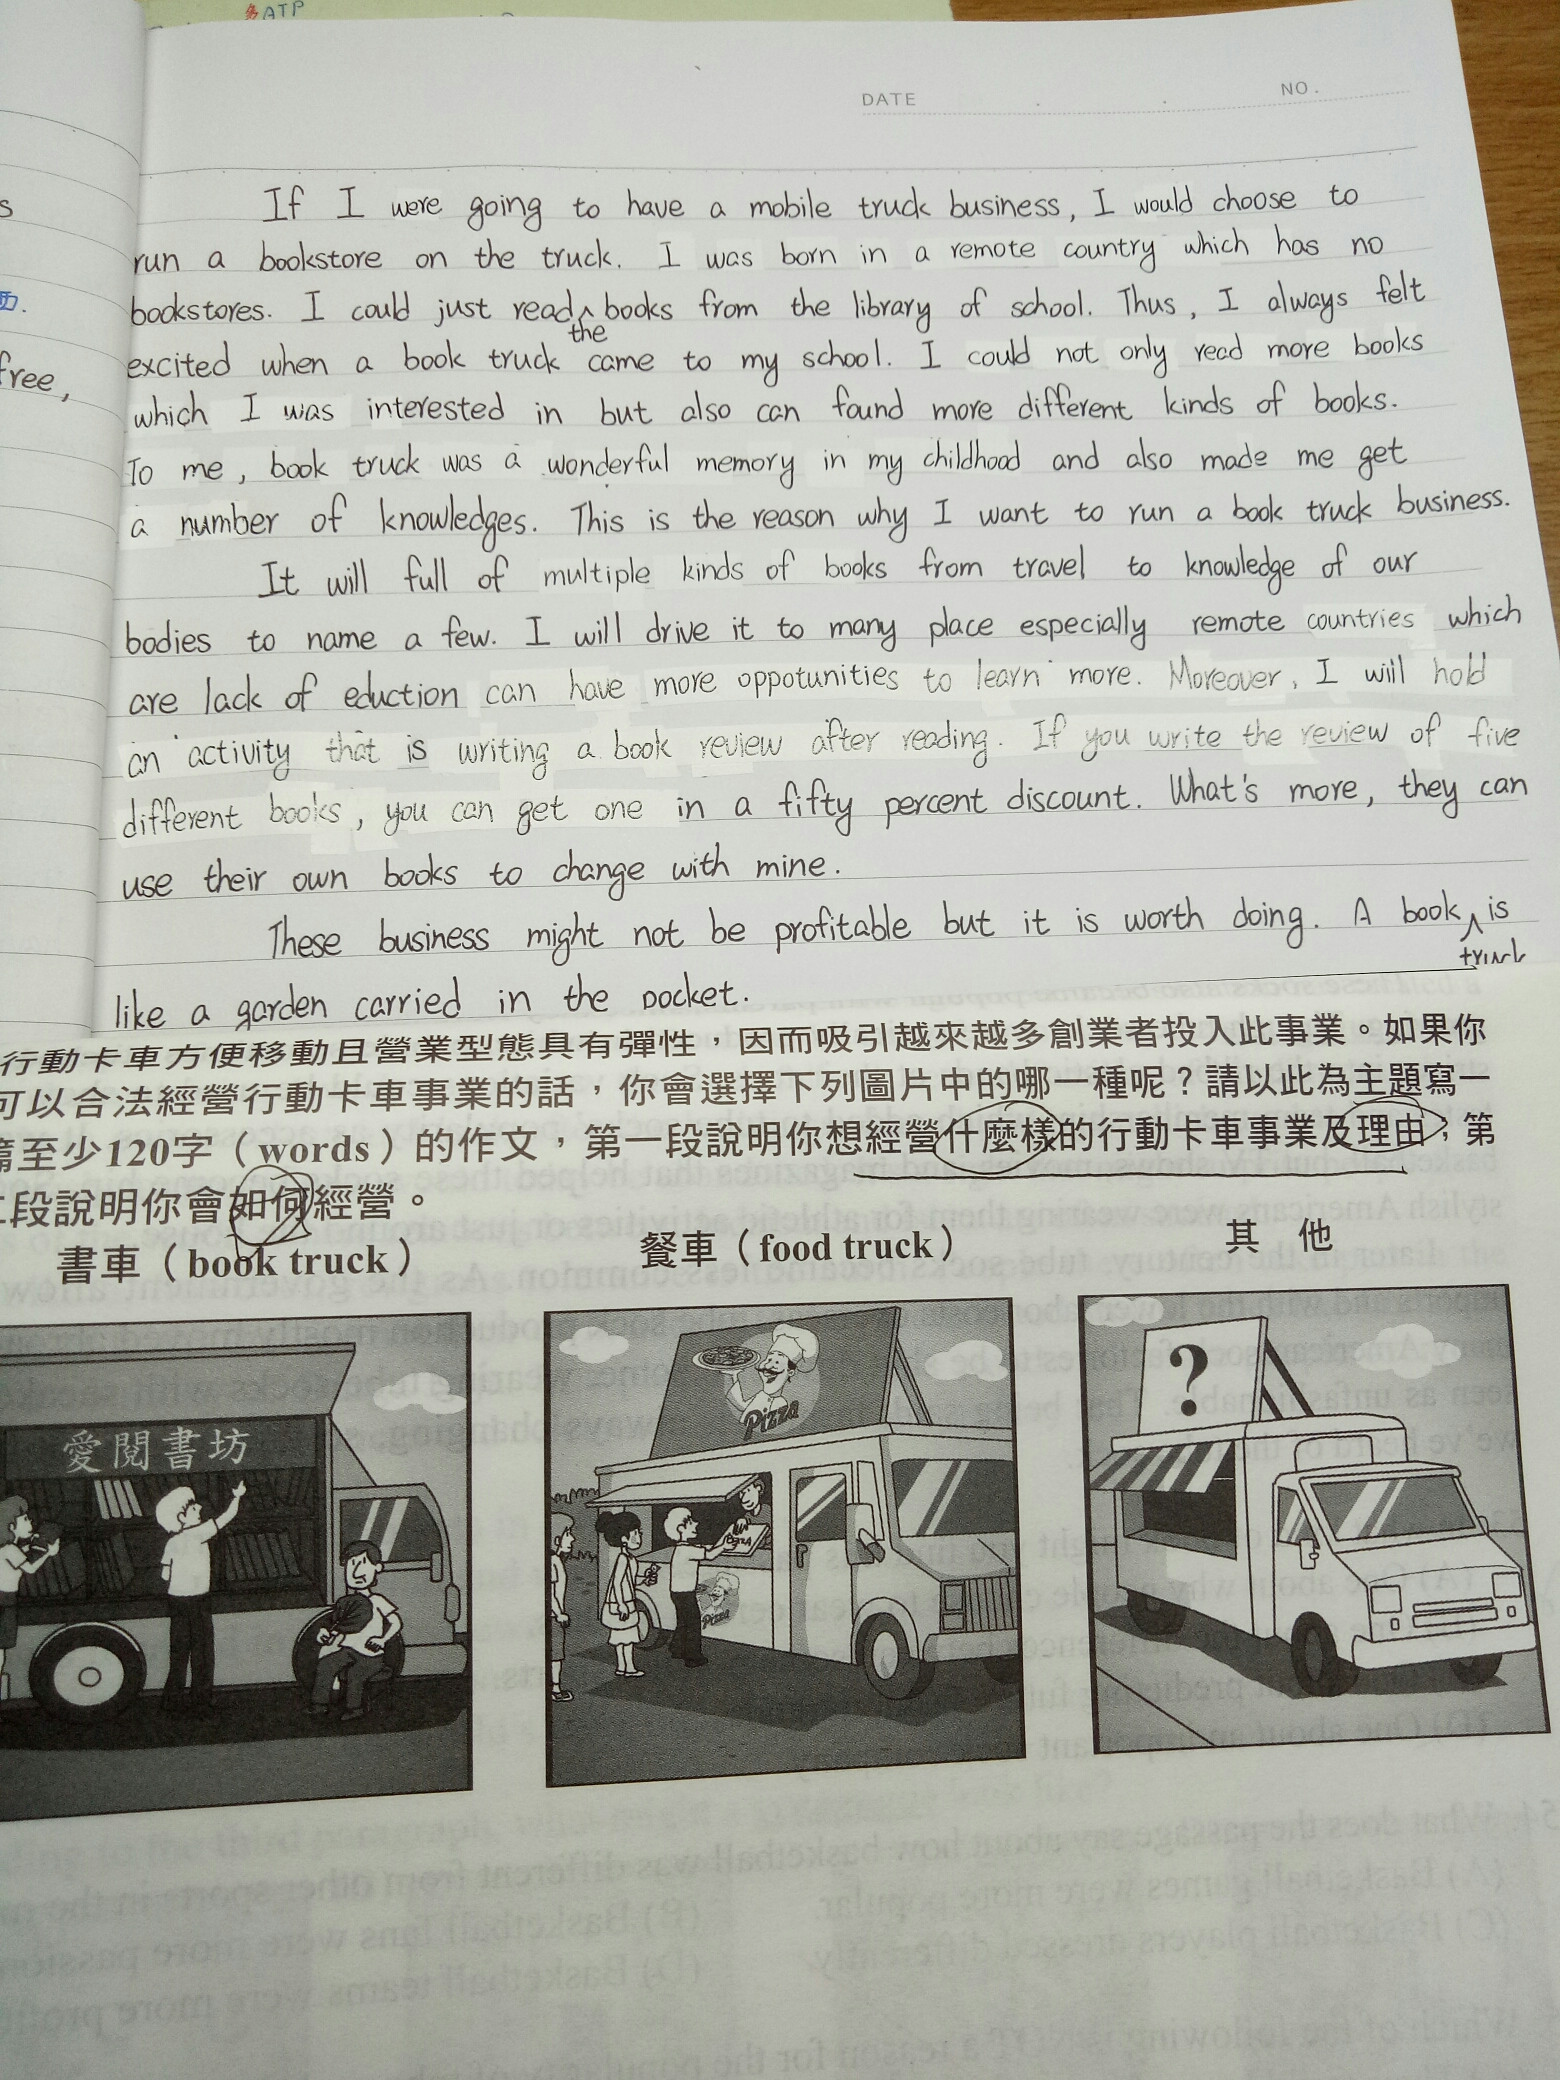 多ATP
DATE
NO.
s
free,
If I were going to have a mobile truck business, I would choose to
run a bookstore on the truck. I was born in a remote country which has no
bookstores. I could just read the books from the library of school. Thus, I always felt
excited when a book truck came to my school. I could not only read more books
which I was interested in but also can found more different kinds of books.
To me, book truck was a wonderful memory in my childhood and also made me get
a number of knowledges. This is the reason why I want to run a book truck business.
It will full of multiple kinds of books from travel to knowledge of our
bodies to name a few. I will drive it to many place especially remote countries which
are lack of eduction can have more oppotunities to learn more. Moreover, I will hold
an activity that is writing a book review after reading. If you write the review of five
different books, you can get one in a fifty percent discount. What's more, they can
use their own books to change with mine.
These business might not be profitable but it is worth doing. A book truck is
like a garden carried in the pocket.
行動卡車方便移動且營業型態具有彈性，因而吸引越來越多創業者投入此事業。如果你
可以合法經營行動卡車事業的話，你會選擇下列圖片中的哪一種呢？請以此為主題寫一
篇至少120字（words）的作文，第一段說明你想經營什麼樣的行動卡車事業及理由，第
二段說明你會如何經營。
書車（book truck）
餐車（food truck）
其 他
愛閱書坊
Pizza
Pizza
?